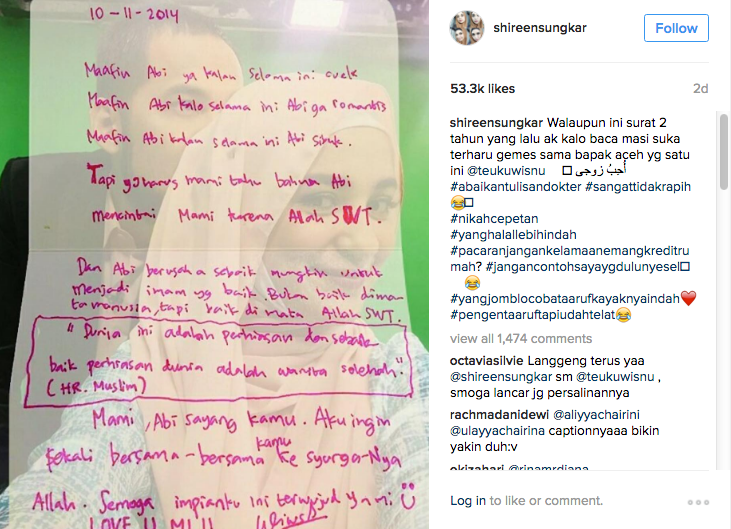 10-11-2014
Maafin Abi ya kalau selama ini cuek
Maafin Abi kalo selama ini Abi ga romantis
Maafin Abi kalau selama ini Abi sibuk.
Tapi yg harus mami tahu bahwa Abi
mencintai Mami karena Allah SWT.
Dan Abi berusaha sebaik mungkin untuk
menjadi imam yg baik. Bukan baik dima
ta manusia, tapi baik di mata Allah SWT.
"Dunia ini adalah perhiasan dan sebaik
baik perhiasan dunia adalah wanita solehah."
(HR. Muslim)
Mami, Abi sayang kamu. Aku ingin
sekali bersama-bersama kamu ke syurga-Nya
Allah. Semoga impianku ini terwujud ya mi
LOVE U MI !!
shireensungkar
Follow
53.3k likes
2d
shireensungkar Walaupun ini surat 2
tahun yang lalu ak kalo baca masi suka
terharu gemes sama bapak aceh yg satu
ini @teukuwisnu أُحِبُّ زَوجِى
#abaikantulisandokter #sangattidakrapih
😂
#nikahcepetan
#yanghalallebihindah
#pacaranjangankelamaanemangkreditru
mah? #jangancontohsayaygdulunyesel
😂
#yangjomblocobataarufkayaknyaindah❤️
#pengentaaruftapiudahtelat😂
view all 1,474 comments
octaviasilvie Langgeng terus yaa
@shireensungkar sm @teukuwisnu ,
smoga lancar jg persalinannya
rachmadanidewi @aliyyachairini
@ulayyachairina captionnyaaa bikin
yakin duh:v
okizahari @rinamrdiana
Log in to like or comment.